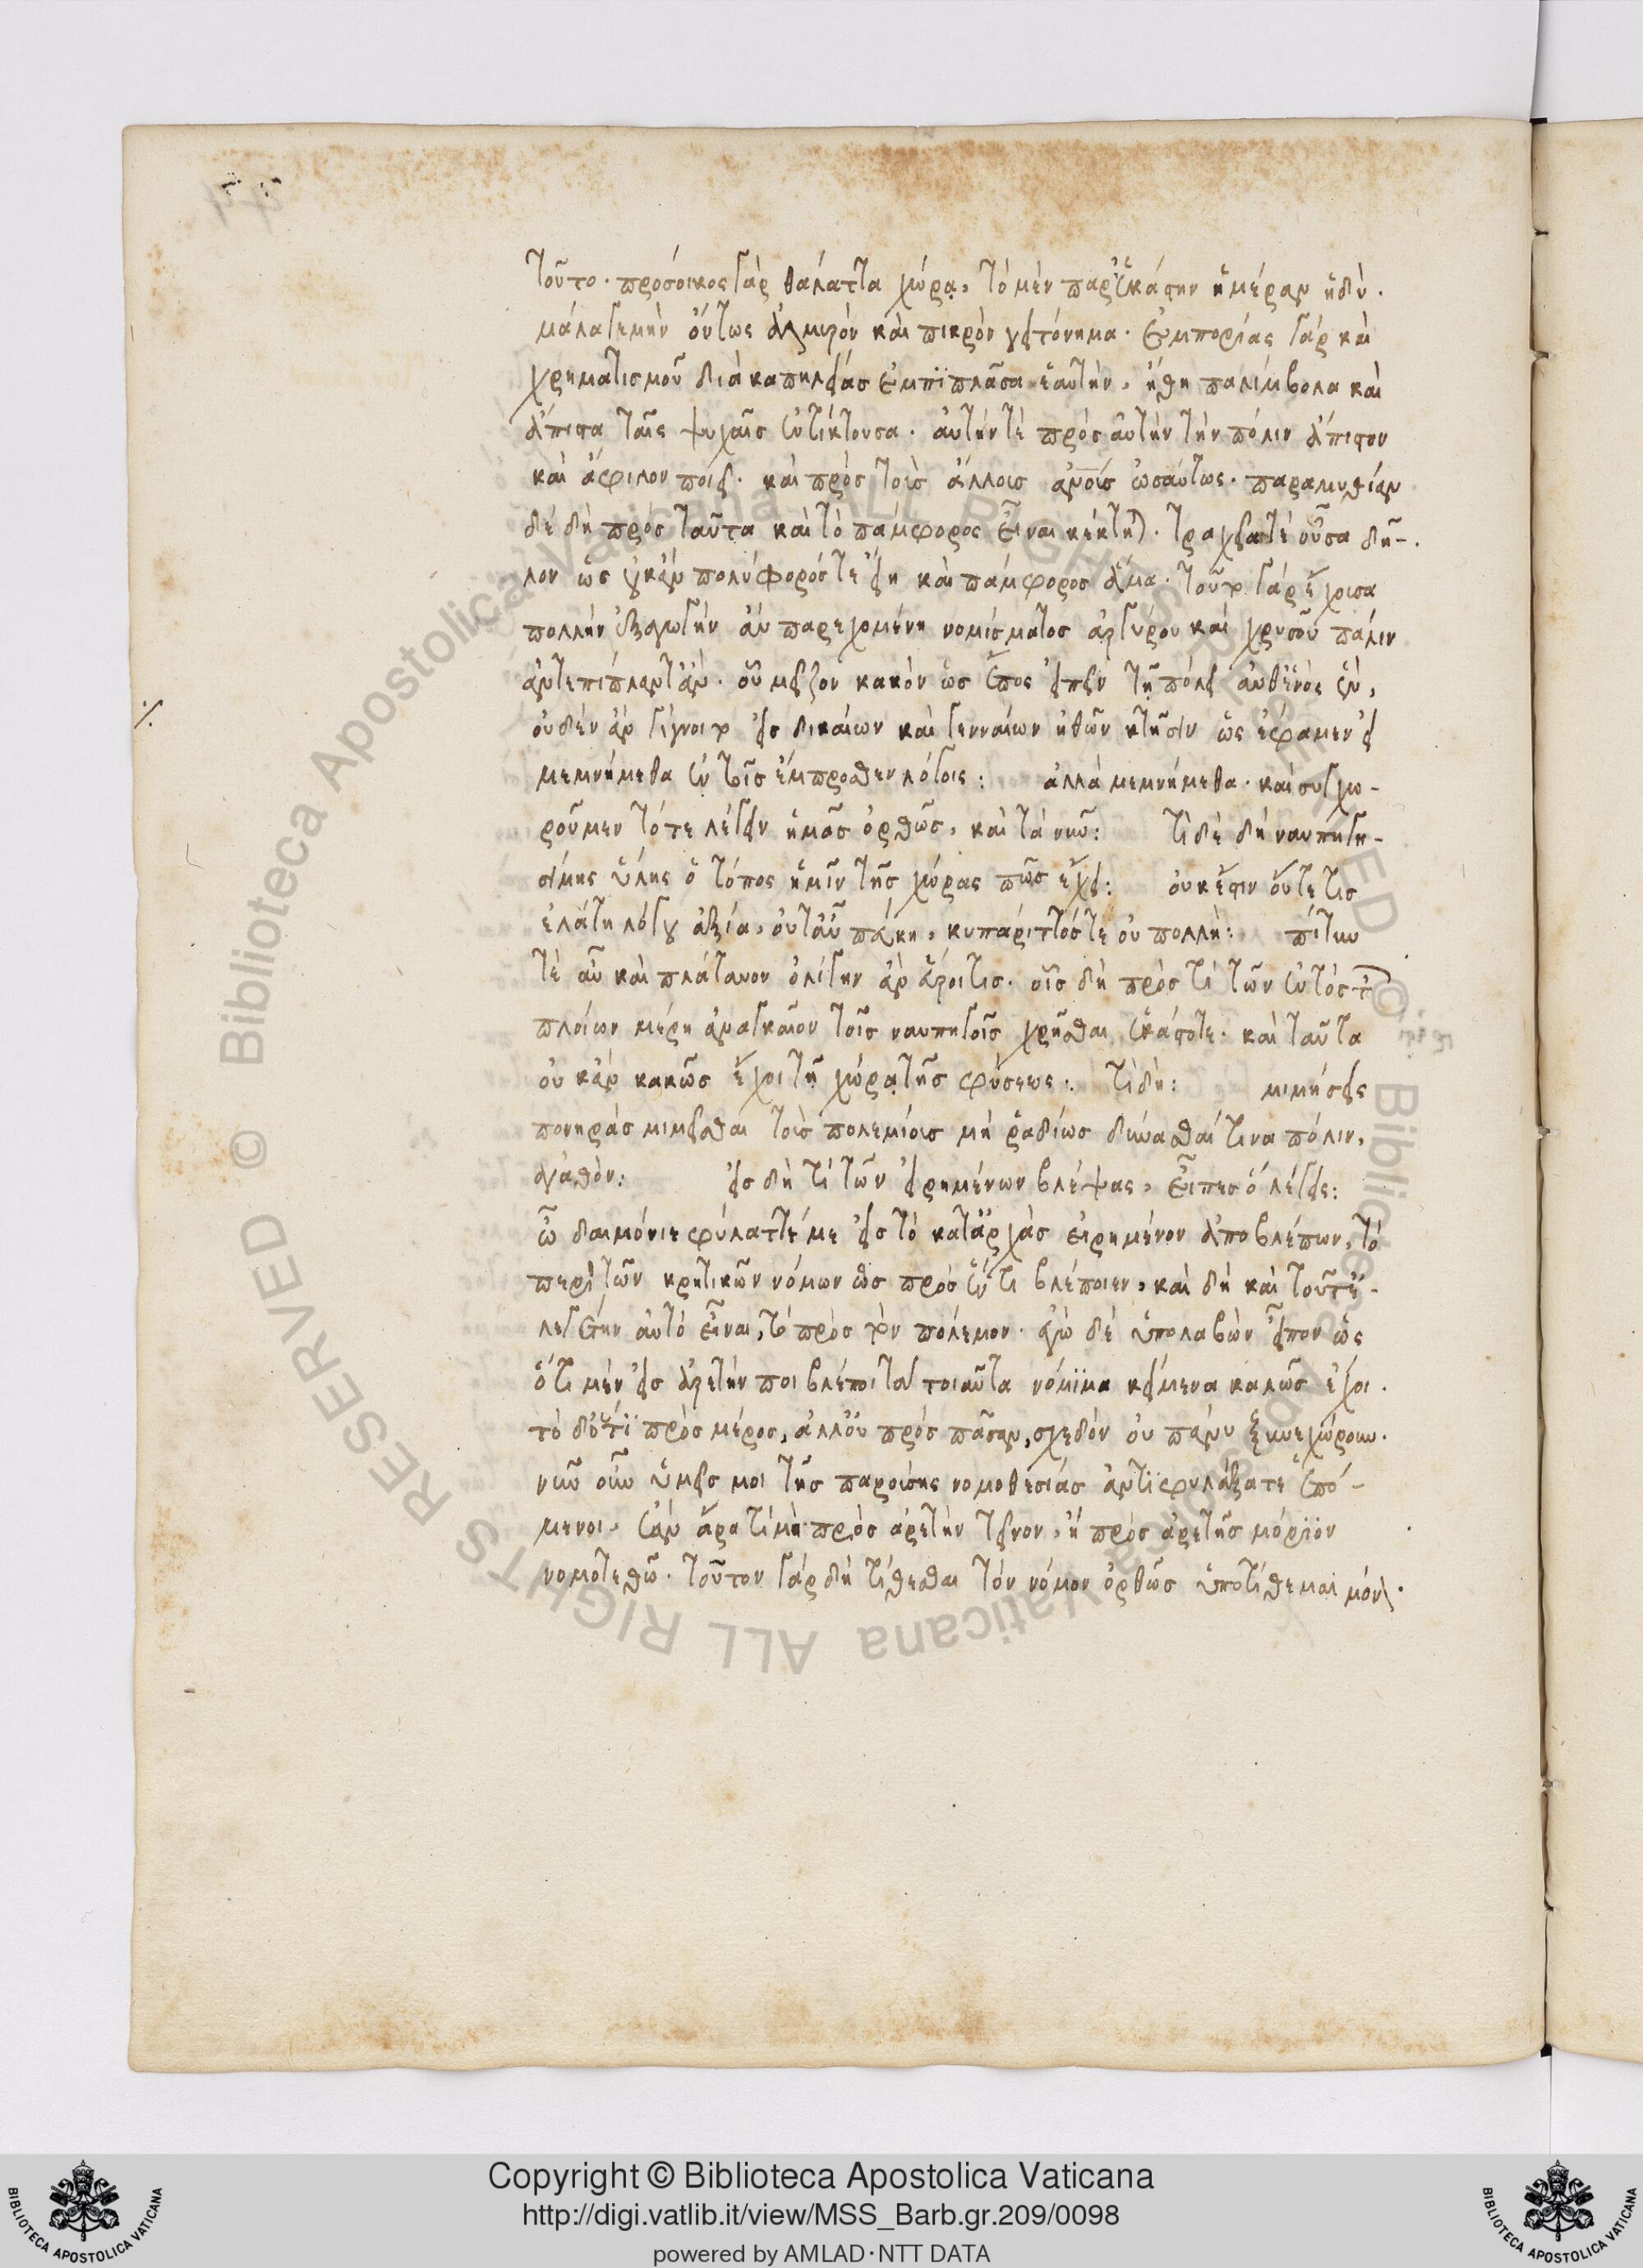 τοῦτο· πρόσοικος γὰρ θαλάττα χώρα, τὸ μὲν παρ' ἑκάστην ἡμέραν ἡδύ·
μάλα γε μὴν ὄντως ἁλμυρὸν καὶ πικρὸν γειτόνημα· ἐμπορίας γὰρ καὶ
χρηματισμοῦ διὰ καπηλείας ἐμπιπλᾶσα ἑαυτὴν, ἤθη παλίμβολα καὶ
ἄπιστα ταῖς ψυχαῖς ἐντίκτουσα· αὐτήν τε πρὸς αὑτὴν τὴν πόλιν ἄπιστον
καὶ ἄφιλον ποιεῖ· καὶ πρὸς τοὺς ἄλλους ἀνους ὡσαύτως· παραμυθίαν
δὲ δὴ πρὸς ταῦτα καὶ τὸ πάμφορος εἶναι κέκτηται· τραχεῖα τὲ οὖσα δῆ-
λον ὡς οὐκ ἂν πολύφορός τε εἴη καὶ πάμφορος ἅμα· τοῦτο γὰρ ἔχουσα
πολλὴν ἐξαγωγὴν ἂν παρεχομένη νομίσματος ἀργυροῦ καὶ χρυσοῦ πάλιν
ἀντεπίπλαντ' ἄν· οὗ μεῖζον κακὸν ὡς ἔπος εἰπεῖν τῆ πόλει ἀνθ' ἑνὸς ἓν,
οὐδὲν ἂν γίγνοιτο εἰς δικαίων καὶ γενναίων ἠθῶν κτῆσιν ὡς ἔφαμεν εἰ
μεμνήμεθα ἐν τοῖς ἔμπροσθεν λόγοις: ἀλλὰ μεμνήμεθα· καὶ συγχω-
ροῦμεν τότε λέγειν ἡμᾶς ὀρθῶς, καὶ τὰ νῦν: τί δὲ δὴ ναυπηγη-
σίμης ὕλης ὁ τόπος ἡμῖν τῆς χώρας πῶς ἔχει: οὐκ ἔστιν οὔτε τις
ἐλάτη λόγου ἀξία, οὔτ' αὖ πεύκη, κυπάριττός τε οὐ πολλή: πίτυν
τὲ αὖ καὶ πλάτανον ὀλίγην ἂν εὕροι τις· οἷς δὴ πρὸς τὶ τῶν ἐντὸς τῶν
πλοίων μέρη ἀναγκαῖον τοῖς ναυπηγοῖς χρῆσθαι ἑκάστοτε· καὶ ταῦτα
οὐκ ἂν κακῶς ἔχοι τῆ χώρα τῆς φύσεως: τί δή: μιμήσεις
πονηρὰς μιμεῖσθαι τοὺς πολεμίους μὴ ῥαδίως δύνασθαί τινα πόλιν,
ἀγαθὸν: εἰς δὴ τί τῶν εἰρημένων βλέψας, εἶπες ὃ λέγεις:
ὦ δαιμόνιε φύλαττέ με εἰς τὸ κατ' ἀρχὰς εἰρημένον ἀποβλέπων, τὸ
περὶ τῶν κρητικῶν νόμων ὡς πρὸς ἕν τι βλέποιεν, καὶ δὴ καὶ τοῦτ' ἐ-
λεγέτην αὐτὸ εἶναι, τὸ πρὸς τὸν πόλεμον· ἐγὼ δὲ ὑπολαβὼν εἶπον ὡς
ὅτι μὲν εἰς ἀρετήν ποι βλέποι τὰ τοιαῦτα νόμιμα κείμενα καλῶς ἔχοι·
τὸ δὲ ὅτι πρὸς μέρος, ἀλλ' οὐ πρὸς πᾶσαν, σχεδὸν οὐ πάνυ ξυνεχώρουν·
νῦν οὖν ὑμεῖς μοι τῆς παρούσης νομοθεσίας ἀντιφυλάξατε ἑπό-
μενοι, ἐὰν ἄρα τὶ μὴ πρὸς ἀρετὴν τεῖνον, ἢ πρὸς ἀρετῆς μόριον
νομοτεθῶ· τοῦτον γὰρ δὴ τίθεσθαι τὸν νόμον ὀρθῶς ὑποτίθεμαι μόνον·
© Biblioteca Apostolica Vaticana ALL RIGHTS RESERVED © Biblioteca Apostolica Vaticana ALL RIGHTS RESERVED
Copyright © Biblioteca Apostolica Vaticana
http://digi.vatlib.it/view/MSS_Barb.gr.209/0098
powered by AMLAD·NTT DATA
BIBLIOTECA APOSTOLICA VATICANA
BIBLIOTECA APOSTOLICA VATICANA